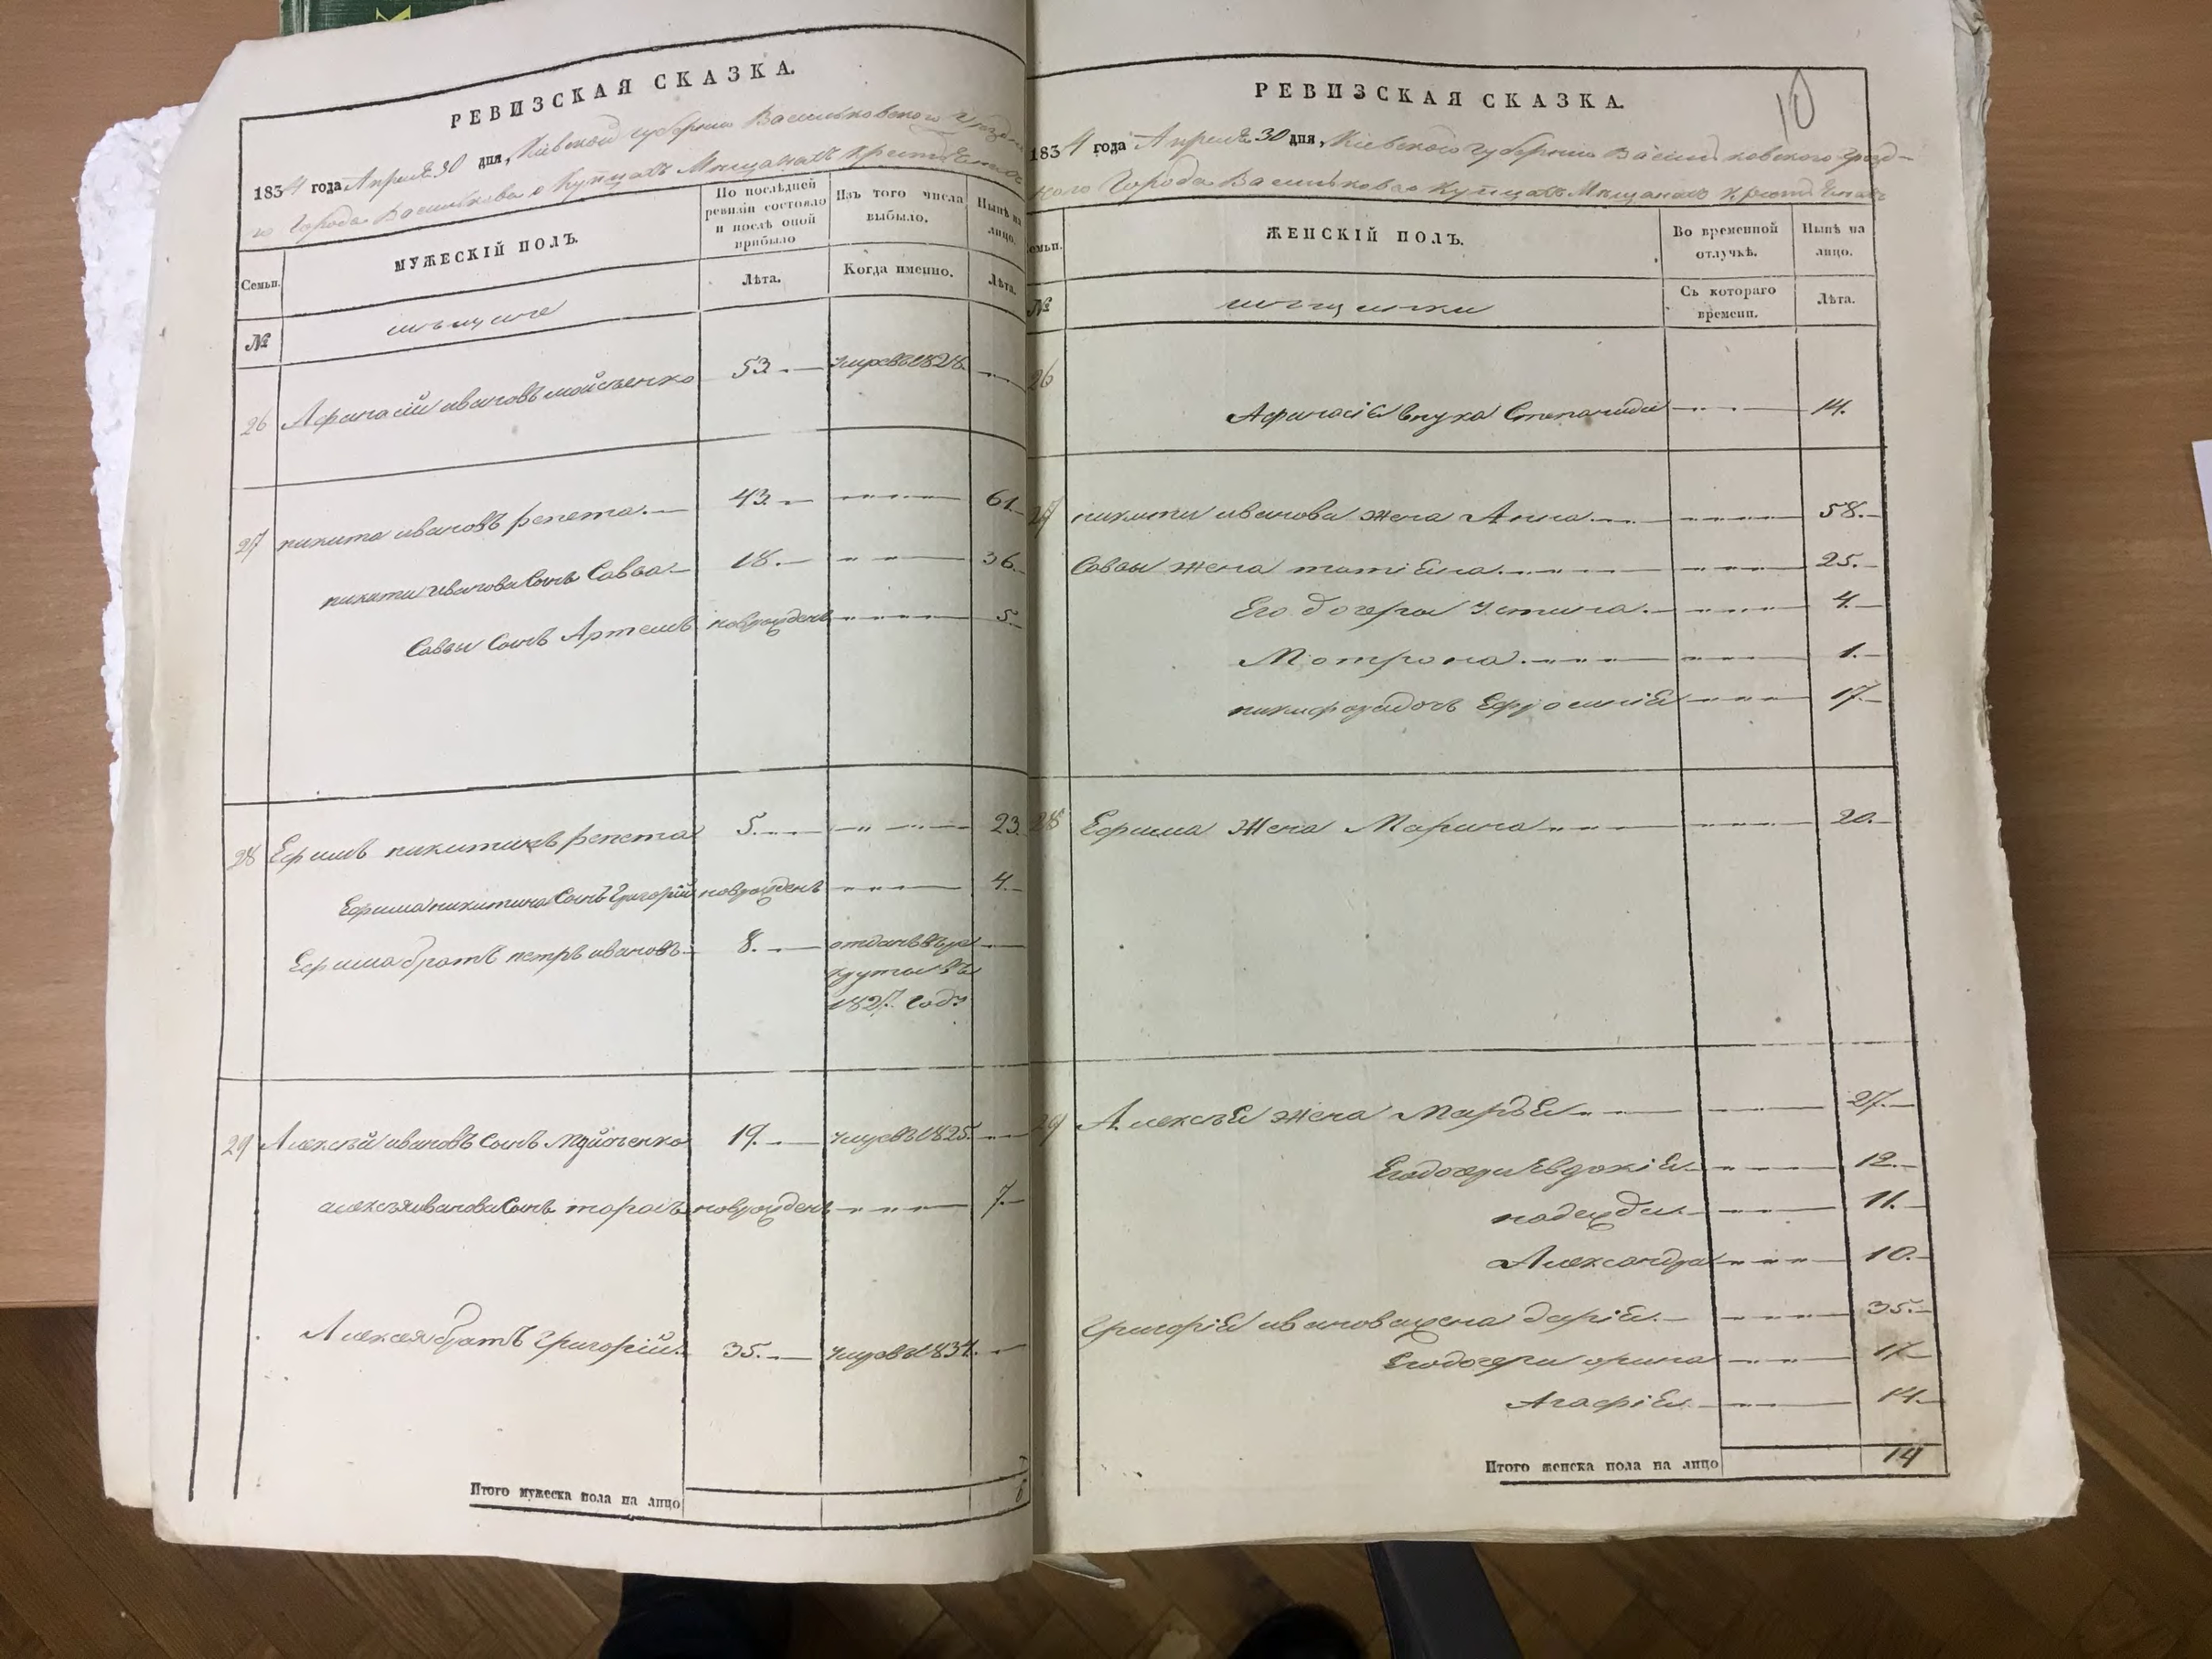 РЕВИЗСКАЯ СКАЗКА.
1834 года Апреля 30 дня, Кіевской губерніи Васильковского уезд
го Города Василькова о Купцахъ Мещанахъ Христ
Семьи. МУЖЕСКІЙ ПОЛЪ. По послѣдней ревизіи состояло и послѣ оной прибыло Изъ того числа выбыло. Нынѣ на лицо.
Лѣта. Когда именно. Лѣта.
№ мещане
26 Афанасій ивановъ мойсѣенко 53 умре въ 1828
27 никита ивановъ репета 43 61
никиты иванова Сынъ Савва 18 36
Саввы Сынъ Артемъ новрожденъ 5
28 Ефимъ никитинъ репета 5 23
Ефима никитина Сынъ Григорій новрожденъ 4
Ефима братъ петръ ивановъ 8 отданъ въ ре
круты въ
1827 Году
29 Алексѣй ивановъ Сынъ Мойсѣенко 19 умре въ 1825
алексѣя иванова Сынъ тарасъ новрожденъ 7
Алексея братъ Григорій 35 умре въ 1834
Итого мужеска пола на лицо 6
10
РЕВИЗСКАЯ СКАЗКА.
1834 года Апреля 30 дня, Кіевского Губерніи Васильковского уезд-
ного Города Василькова о Купцахъ Мещанахъ Христ
Семьи. ЖЕНСКІЙ ПОЛЪ. Во временной отлучкѣ. Нынѣ на лицо.
№ мещанки Съ котораго времени. Лѣта.
26
Афанасія внука Степанида 14.
27 никиты иванова жена Анна 58.
Саввы жена татіяна 25.
Его дочери Устина 4.
Мотрона 1.
дочь Ефросинія 17.
28 Ефима Жена Марина 20.
29 Алексѣя жена Марья 27.
Его дочери Евдокія 12.
надежда 11.
Александра 10.
Григорія иванова жена дарія 35.
Его дочери орина 17
Агафія 14.
Итого женска пола на лицо 14